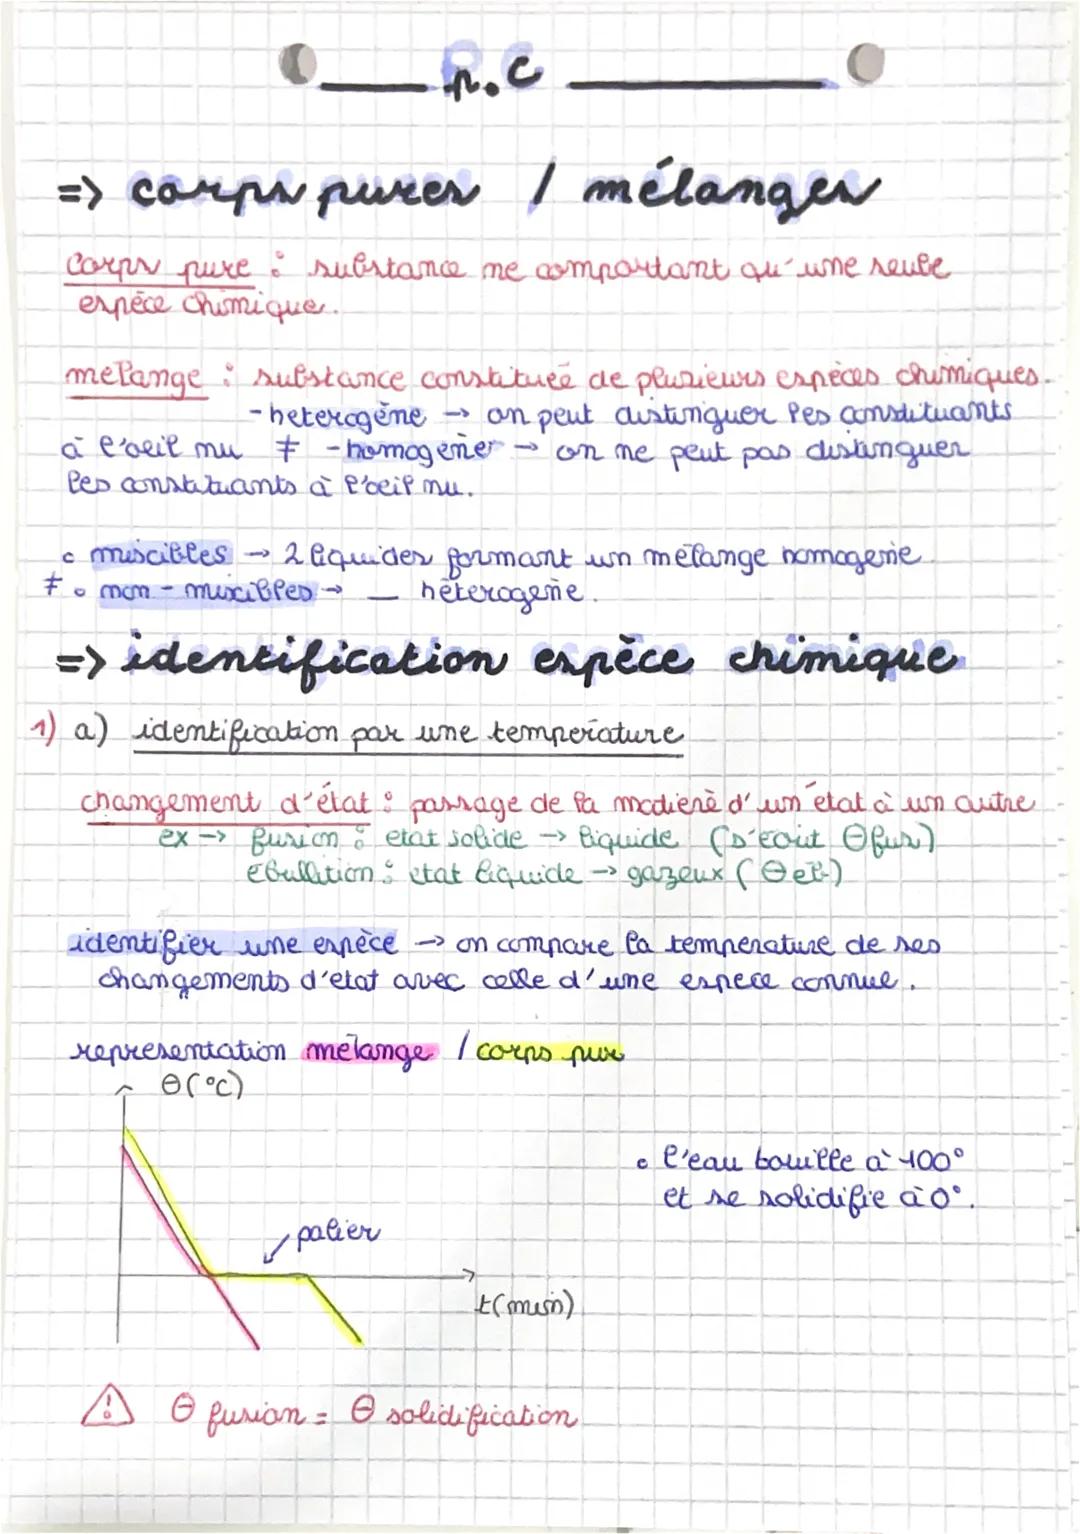 P.C
=> corps pures / mélanges
corps pure : substance ne comportant qu'une seule
espéce chimique.
melange : substance constituée de plusieurs espèces chimiques.
- heterogène → on peut distinguer les constituants
à l'oeil nu ≠ - homogène → on ne peut pas distinguer
les constituants à l'oeil nu.
∘ miscibles → 2 liquides formant un mélange homogene.
≠ ∘ non - miscibles → — hétérogene.
=> identification espèce chimique
1) a) identification par une temperature
changement d'état : passage de la matière d'un état à un autre
ex → fusion : etat solide → liquide (s'ecrit θfus)
ébullition : etat liquide → gazeux (θeb)
identifier une espèce → on compare la temperature de ses
changements d'etat avec celle d'une espece connue.
representation mélange / corps pur
θ(°C)
∘ l'eau bouille à 100°
et se solidifie à 0°.
palier
t(min)
⚠ θ fusion = θ solidification